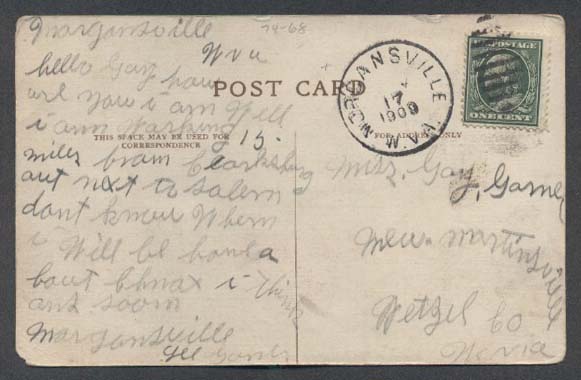 Morgansville
Wva
hello Gay how
are you i am Well
i am Working
15
miles from Clarksburg
out next to Salem
dont know When
i Will be home a
bout Chnax i think
and soon
Morgansville
14-68
POST CARD
THIS SPACE MAY BE USED FOR
CORRESPONDENCE
FOR ADDRESS ONLY
MORGANSVILLE W.VA.
17
1909
U.S. POSTAGE
ONE CENT
Miss, Gay, Garner
New Martinsville
Wetzel Co
W.va